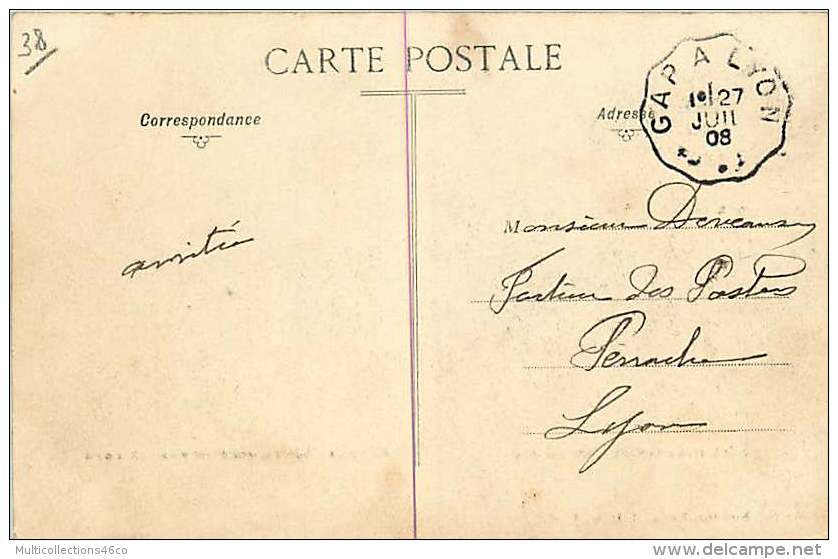 38
CARTE POSTALE
Correspondance
Adresse
GAP A LYON
1º 27
JUIL
08
amitié
Monsieur Deveaux
Facteur des Postes
Perrache
Lyon
Multicollections46co
delcampe.net